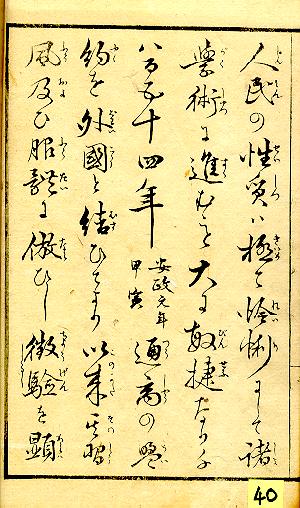 人民の性質ハ極て怜悧にして諸
学術に進むこと大に敏捷なり千
八百五十四年安政元年甲寅通商の盟
約を外國と結ひてより以来其習
風及ひ服飾に倣ひし徴驗を顕
40